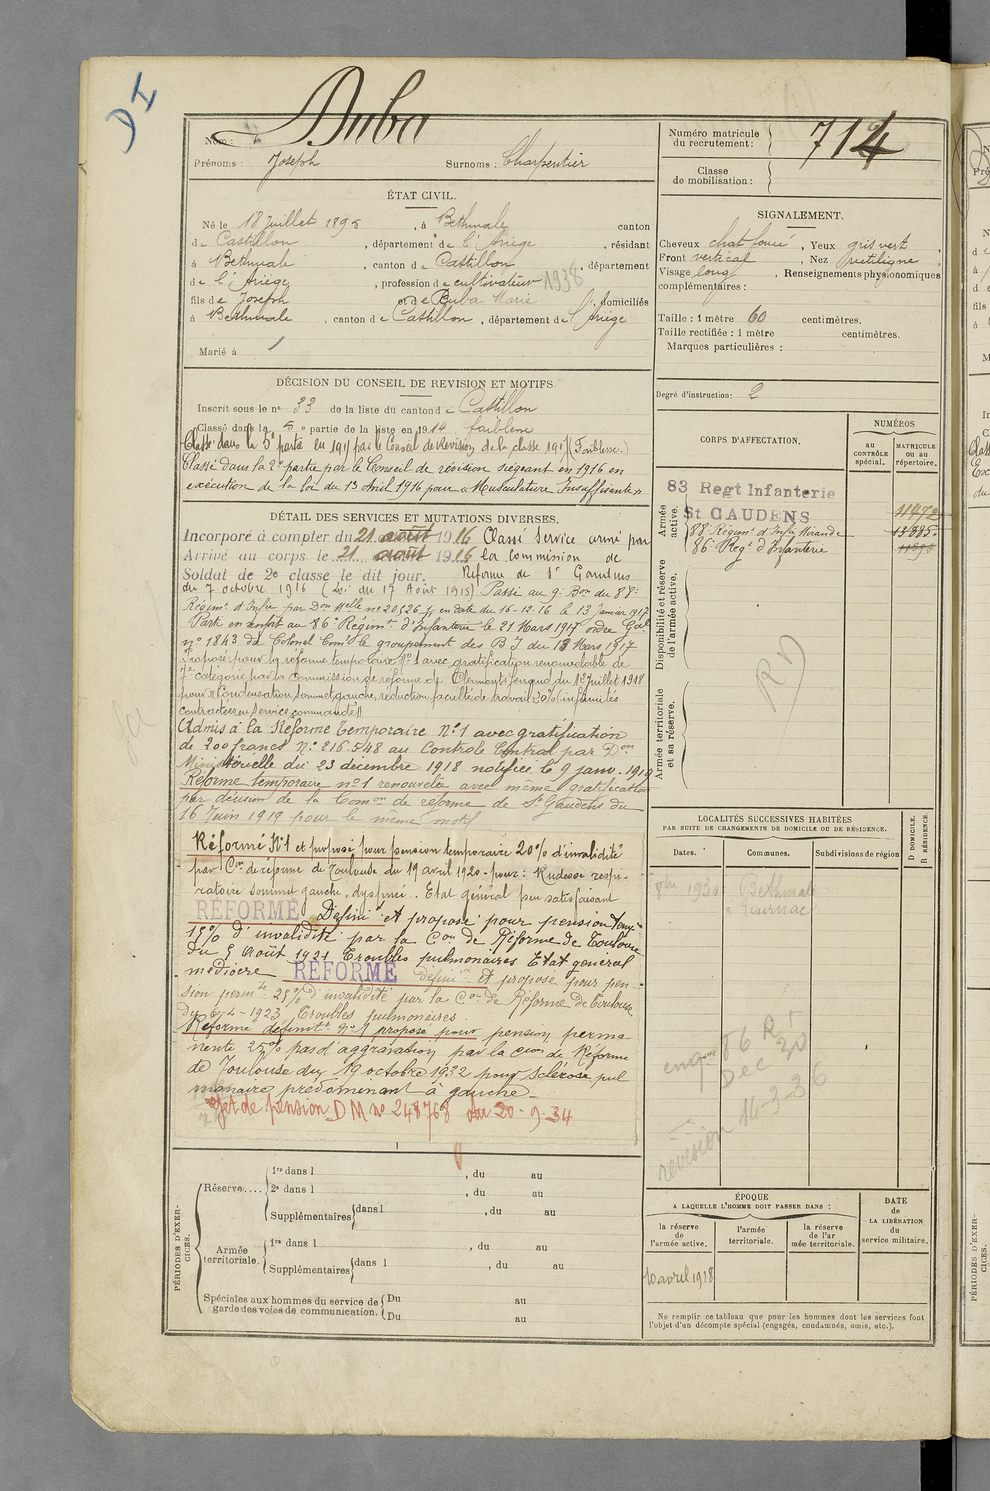 DI
Nom : Duba
Prénoms : Joseph Surnoms : Charpentier
Numéro matricule du recrutement : 714
Classe de mobilisation :
ÉTAT CIVIL.
Né le 18 Juillet 1895, à Bethmale canton
de Castillon, département de l'Ariège, résidant
à Bethmale, canton de Castillon, département
de l'Ariège, profession de cultivateur 1938
fils de Joseph et de Duba Marie, domiciliés
à Bethmale, canton de Castillon, département de l'Ariège
Marié à
SIGNALEMENT.
Cheveux chat foncé, Yeux gris vert,
Front vertical, Nez rectiligne,
Visage long, Renseignements physionomiques
complémentaires :
Taille : 1 mètre 60 centimètres.
Taille rectifiée : 1 mètre centimètres.
Marques particulières :
Degré d'instruction : 2
DÉCISION DU CONSEIL DE REVISION ET MOTIFS
Inscrit sous le n° 33 de la liste du canton de Castillon
Classé dans la 5e partie de la liste en 1914 faiblesse
Classé dans la 5e partie en 1915 par le Conseil de Revision de la classe 1917 (Faiblesse.)
Classé dans la 2e partie par le Conseil de révision siégeant en 1916 en
exécution de la loi du 13 Avril 1916 pour « Musculature Insuffisante »
DÉTAIL DES SERVICES ET MUTATIONS DIVERSES.
Incorporé à compter du 21 août 1916 Classé Service armé par
Arrivé au corps le 21 août 1916 la commission de
Soldat de 2e classe le dit jour. Réforme de St Gaudens
du 7 octobre 1916 (Loi du 17 Août 1915) Passé au 9e Bon du 88e
Régimt d'Infie par Don Melle no 20526 en date du 16-12-16 le 13 Janvier 1917
Parti en renfort au 86e Régimt d'Infanterie le 21 Mars 1917 ordre Gal
no 1843 du Colonel Comt le groupement des B I du 13 Mars 1917
Proposé pour la réforme temporaire No 1 avec gratification renouvelable de
7e catégorie par la Commission de réforme de Clermont ferrand du 12 Juillet 1918
pour « Condensation Sommet gauche, réduction faculté de travail 20% (infirmités
contractées en service commandé)»
Admis à la Réforme temporaire No 1 avec gratification
de 200 francs No 216.548 au Controle Central par Don
Ministérielle du 23 décembre 1918 notifiée le 9 janv. 1919
Réforme temporaire no 1 renouvelée avec même gratification
par décision de la Comon de réforme de St Gaudens du
16 Juin 1919 pour le même motif
Réformé No 1 et proposé pour pension temporaire 20% d'invalidité
par Con de réforme de Toulouse du 19 avril 1920 - pour : Rudesse respi-
ratoire sommet gauche, dyspnée. Etat général peu satisfaisant
RÉFORMÉ Définif et proposé pour pension temp.
15% d'invalidité par la Con de Réforme de Toulouse
du 5 Août 1921 Troubles pulmonaires Etat général
médiocre RÉFORMÉ Définif et proposé pour pen
sion permte 25% d'invalidité par la Con de Réforme de Toulouse
du 6-4-1923 Troubles pulmonaires.
Réformé définitt no 1 proposé pour pension perma
nente 25% pas d'aggravation par la Con de Réforme
de Toulouse du 19 octobre 1932 pour sclérose pul
monaire prédominant à gauche
Rejet de pension D M no 248768 du 20-9-34
CORPS D'AFFECTATION.
NUMÉROS
au contrôle spécial.
MATRICULE ou au répertoire.
Armée active.
83 Regt Infanterie
St GAUDENS 11472
88e Régimt d'Infie Mirande 13885
86e Regt d'Infanterie
Disponibilité et réserve de l'armée active.
Armée territoriale et sa réserve.
LOCALITÉS SUCCESSIVES HABITÉES
PAR SUITE DE CHANGEMENTS DE DOMICILE OU DE RÉSIDENCE.
Dates. Communes. Subdivisions de région
D DOMICILE.
R RÉSIDENCE.
1930 Bethmale
Gournac
86 R I
Dec 30
revision 14-3-36
PÉRIODES D'EXERCICES.
Réserve.... 1re dans l , du au
2e dans l , du au
Supplémentaires dans l , du au
Armée territoriale. 1re dans l , du au
Supplémentaires dans l , du au
Spéciales aux hommes du service de garde des voies de communication. Du au
Du au
ÉPOQUE
A LAQUELLE L'HOMME DOIT PASSER DANS :
la réserve de l'armée active.
l'armée territoriale.
la réserve de l'armée territoriale.
DATE de LA LIBÉRATION du service militaire.
10 avril 1918
Ne remplir ce tableau que pour les hommes dont les services font
l'objet d'un décompte spécial (engagés, condamnés, omis, etc.).